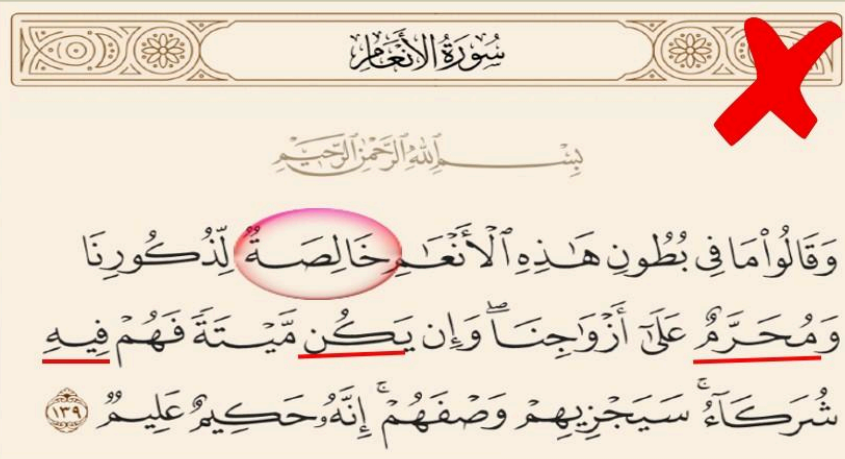 سُورَةُ الأَنْعَامِ
بِسْمِ ٱللَّهِ ٱلرَّحْمَٰنِ ٱلرَّحِيمِ
وَقَالُوا۟ مَا فِى بُطُونِ هَٰذِهِ ٱلْأَنْعَٰمِ خَالِصَةٌ لِّذُكُورِنَا
وَمُحَرَّمٌ عَلَىٰٓ أَزْوَٰجِنَا ۖ وَإِن يَكُن مَّيْتَةً فَهُمْ فِيهِ
شُرَكَآءُ ۚ سَيَجْزِيهِمْ وَصْفَهُمْ ۚ إِنَّهُۥ حَكِيمٌ عَلِيمٌ ١٣٩